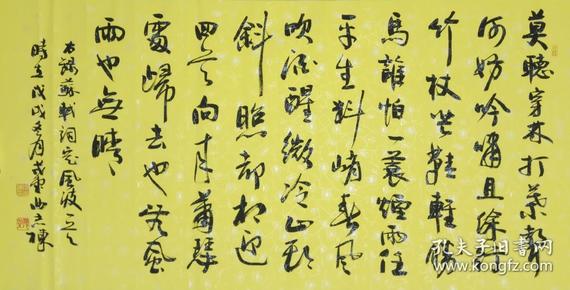 莫聽穿林打葉聲
何妨吟嘯且徐行
竹杖芒鞋輕勝
馬誰怕一蓑煙雨任
平生料峭春風
吹酒醒微冷山頭
斜照卻相迎
回首向來蕭瑟
處歸去也無風
雨也無晴
右錄蘇軾詞定風波
時在戊戌
孔夫子旧书网
www.kongfz.com